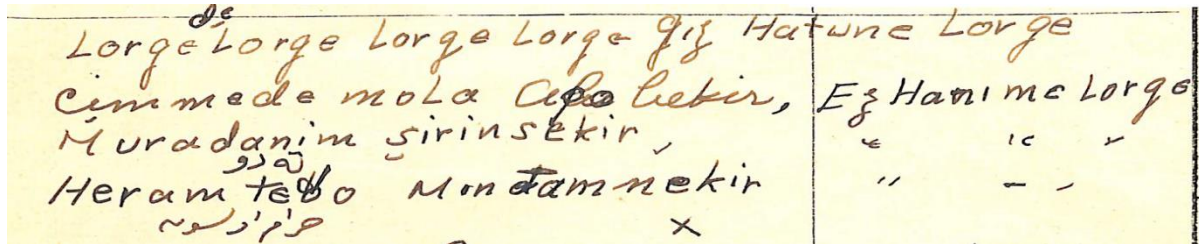 de
Lorge Lorge Lorge Lorge qız Hatune Lorge
Cimmede mola bekir, Ez Hanıme Lorge
Muradanim şirinsekir, " " "
Heram tebo Min tam nekir " - -
x